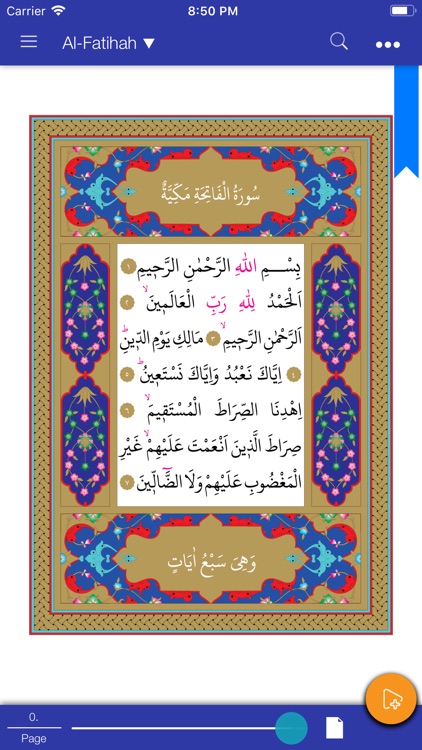 Carrier 8:50 PM
Al-Fatihah ▼
سُورَةُ الْفَاتِحَةِ مَكِّيَّةٌ
بِسْــمِ اللهِ الرَّحْمٰنِ الرَّحٖيمِ ١
اَلْحَمْدُ لِلهِ رَبِّ الْعَالَمٖينَۙ ٢
اَلرَّحْمٰنِ الرَّحٖيمِۙ ٣ مَالِكِ يَوْمِ الدّٖينِؕ
٤ اِيَّاكَ نَعْبُدُ وَاِيَّاكَ نَسْتَعٖينُؕ ٥
اِهْدِنَا الصِّرَاطَ الْمُسْتَقٖيمَۙ ٦
صِرَاطَ الَّذٖينَ اَنْعَمْتَ عَلَيْهِمْۙ غَيْرِ
الْمَغْضُوبِ عَلَيْهِمْ وَلَا الضَّٓالّٖينَ ٧
وَهِىَ سَبْعُ اٰيَاتٍ
0.
Page